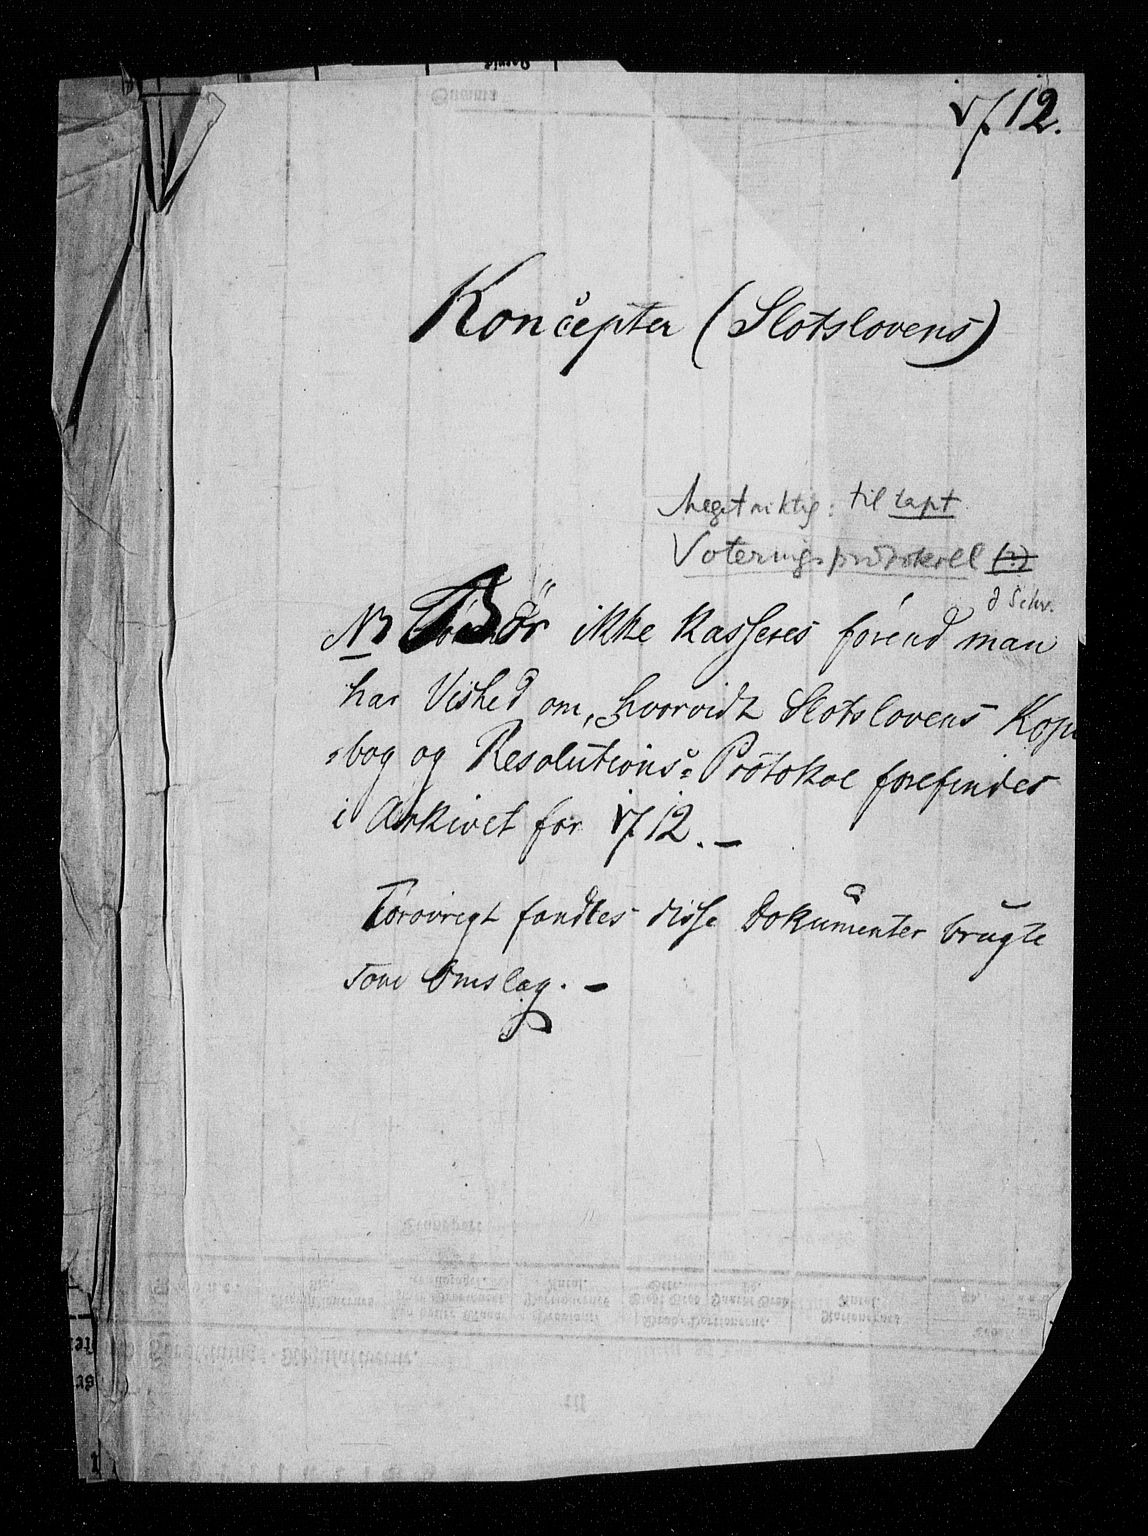 1712.
Koncepter (Slotslovens)
Meget viktig: til tapt
Voteringsprotokoll (?)
NB Bør ikke kasseres førend man
har Vished om, hvorvidt Slotslovens Kopi
-bog og Resolutions-Protokol forefindes
i Arkivet for 1712. —
Forøvrigt fandtes disse Dokumenter brugte
som Omslag. —